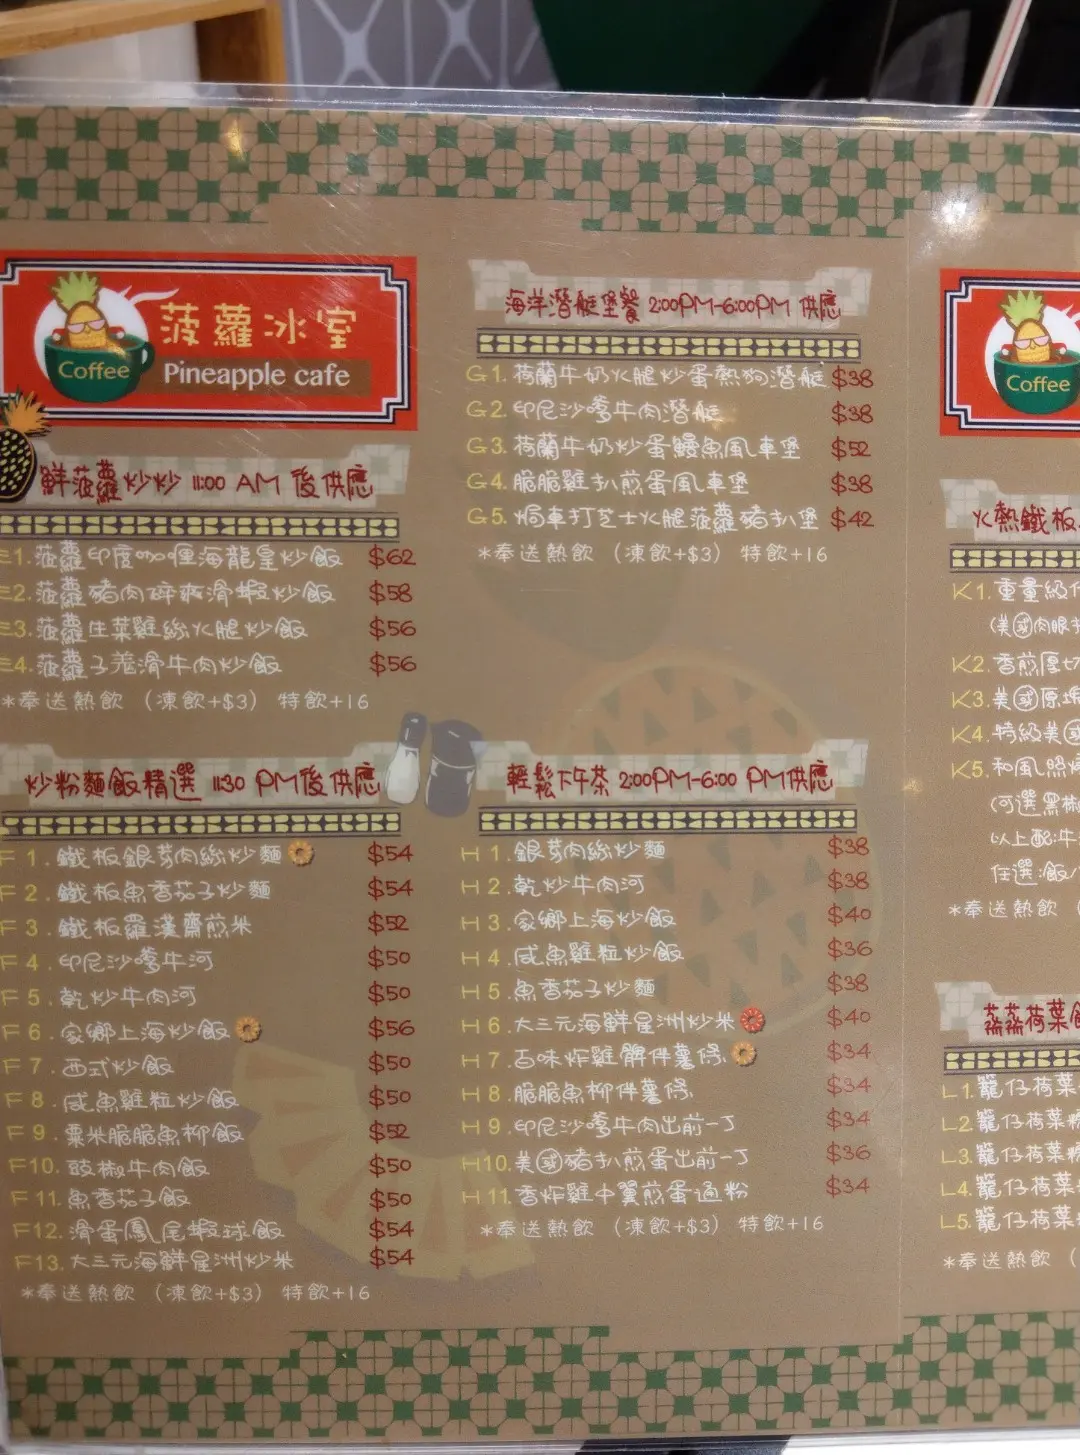 菠蘿冰室
Coffee
Pineapple cafe
鮮菠蘿炒炒 11:00 AM 後供應
E1.菠蘿印度咖喱海龍皇炒飯 $62
E2.菠蘿豬肉碎爽滑蝦炒飯 $58
E3.菠蘿生菜雞絲火腿炒飯 $56
E4.菠蘿子羗滑牛肉炒飯 $56
*奉送熱飲 (凍飲+$3) 特飲+16
炒粉麵飯精選 1130 PM後供應
F1.鐵板銀芽肉絲炒麵 $54
F2.鐵板魚香茄子炒麵 $54
F3.鐵板羅漢齋煎米 $52
F4.印尼沙嗲牛河 $50
F5.乾炒牛肉河 $50
F6.家鄉上海炒飯 $56
F7.西式炒飯 $50
F8.咸魚雞粒炒飯 $50
F9.粟米脆脆魚柳飯 $52
F10.豉椒牛肉飯 $50
F11.魚香茄子飯 $50
F12.滑蛋鳳尾蝦球飯 $54
F13.大三元海鮮星洲炒米 $54
*奉送熱飲 (凍飲+$3) 特飲+16
海洋潛艇堡餐 2:00PM-6:00PM 供應
G1.荷蘭牛奶火腿炒蛋熱狗潛艇 $38
G2.印尼沙嗲牛肉潛艇 $38
G3.荷蘭牛奶炒蛋鰻魚風車堡 $52
G4.脆脆雞扒煎蛋風車堡 $38
G5.焗車打芝士火腿菠蘿豬扒堡 $42
*奉送熱飲 (凍飲+$3) 特飲+16
輕鬆下午茶 2:00PM-6:00 PM供應
H1.銀芽肉絲炒麵 $38
H2.乾炒牛肉河 $38
H3.家鄉上海炒飯 $40
H4.咸魚雞粒炒飯 $36
H5.魚香茄子炒麵 $38
H6.大三元海鮮星洲炒米 $40
H7.百味炸雞髀伴薯條 $34
H8.脆脆魚柳伴薯條 $34
H9.印尼沙嗲牛肉出前一丁 $34
H10.美國豬扒煎蛋出前一丁 $36
H11.香炸雞中翼煎蛋通粉 $34
*奉送熱飲 (凍飲+$3) 特飲+16
Coffee
火熱鐵板
K1.重量級
(美國肉眼
K2.香煎厚切
K3.美國原塊
K4.特級美國
K5.和風照燒
(可選黑椒
以上配:牛
任選:飯
*奉送熱飲
荷葉飯
L1.籠仔荷葉
L2.籠仔荷葉
L3.籠仔荷葉
L4.籠仔荷葉
L5.籠仔荷葉
*奉送熱飲 (